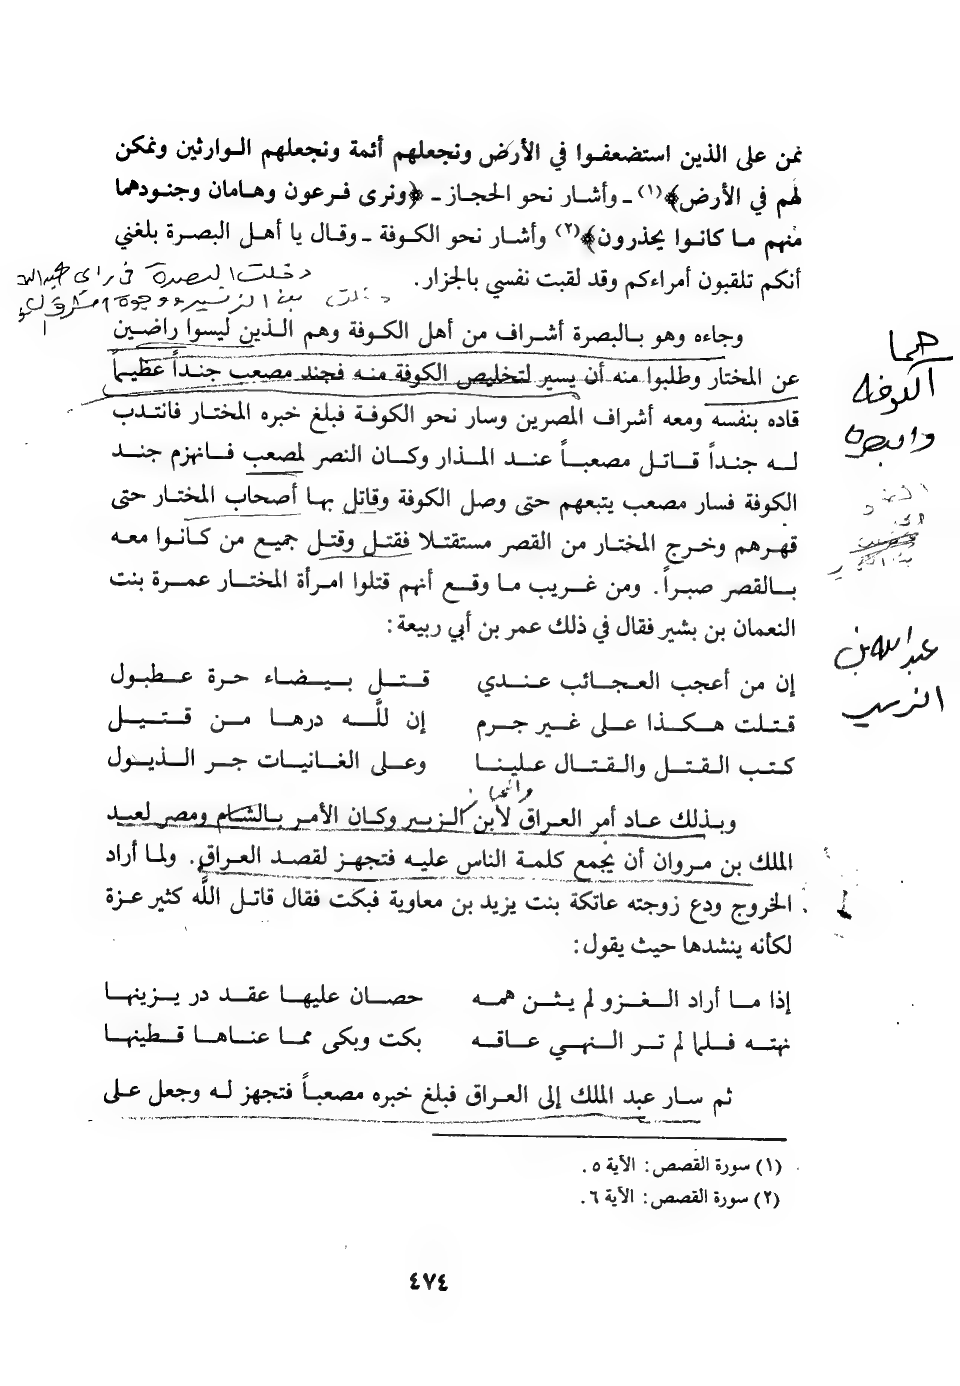 نمن على الذين استضعفوا في الأرض ونجعلهم أئمة ونجعلهم الوارثين ونمكن
لهم في الأرض﴾(١) ـ وأشار نحو الحجاز ـ ﴿ونرى فرعون وهامان وجنودهما
منهم ما كانوا يحذرون﴾(٢) وأشار نحو الكوفة ـ وقال يا أهل البصرة بلغني
أنكم تلقبون أمراءكم وقد لقبت نفسي بالجزار .
دخلت البصرة في راي عبدالله
بن الزبير
وجاءه وهو بالبصرة أشراف من أهل الكوفة وهم الذين ليسوا راضين
عن المختار وطلبوا منه أن يسير لتخليص الكوفة منه فجند مصعب جنداً عظيماً
قاده بنفسه ومعه أشراف المصرين وسار نحو الكوفة فبلغ خبره المختار فانتدب
له جنداً قاتل مصعباً عند المذار وكان النصر لمصعب فانهزم جند
الكوفة فسار مصعب يتبعهم حتى وصل الكوفة وقاتل بها أصحاب المختار حتى
قهرهم وخرج المختار من القصر مستقتلا فقتل وقتل جميع من كانوا معه
بالقصر صبراً . ومن غريب ما وقع أنهم قتلوا امرأة المختار عمرة بنت
النعمان بن بشير فقال في ذلك عمر بن أبي ربيعة :
هما
الكوفه
والبصرة
عبدالله بن
الزبير
إن من أعجب العجائب عندي قتل بيضاء حرة عطبول
قتلت هكذا على غير جرم إن للَّه درها من قتيل
كتب القتل والقتال علينا وعلى الغانيات جر الذيول
وبذلك عاد أمر العراق لأبن الزبير وكان الأمر بالشام ومصر لعبد
الملك بن مروان أن يجمع كلمة الناس عليه فتجهز لقصد العراق . ولما أراد
الخروج ودع زوجته عاتكة بنت يزيد بن معاوية فبكت فقال قاتل اللَّه كثير عزة
لكأنه ينشدها حيث يقول :
إذا ما أراد الغزو لم يثن همه حصان عليها عقد در يزينها
نهته فلما لم تر النهي عاقه بكت وبكى مما عناها قطينها
ثم سار عبد الملك إلى العراق فبلغ خبره مصعباً فتجهز له وجعل على
(١) سورة القصص : الآية ٥ .
(٢) سورة القصص : الآية ٦ .
٤٧٤